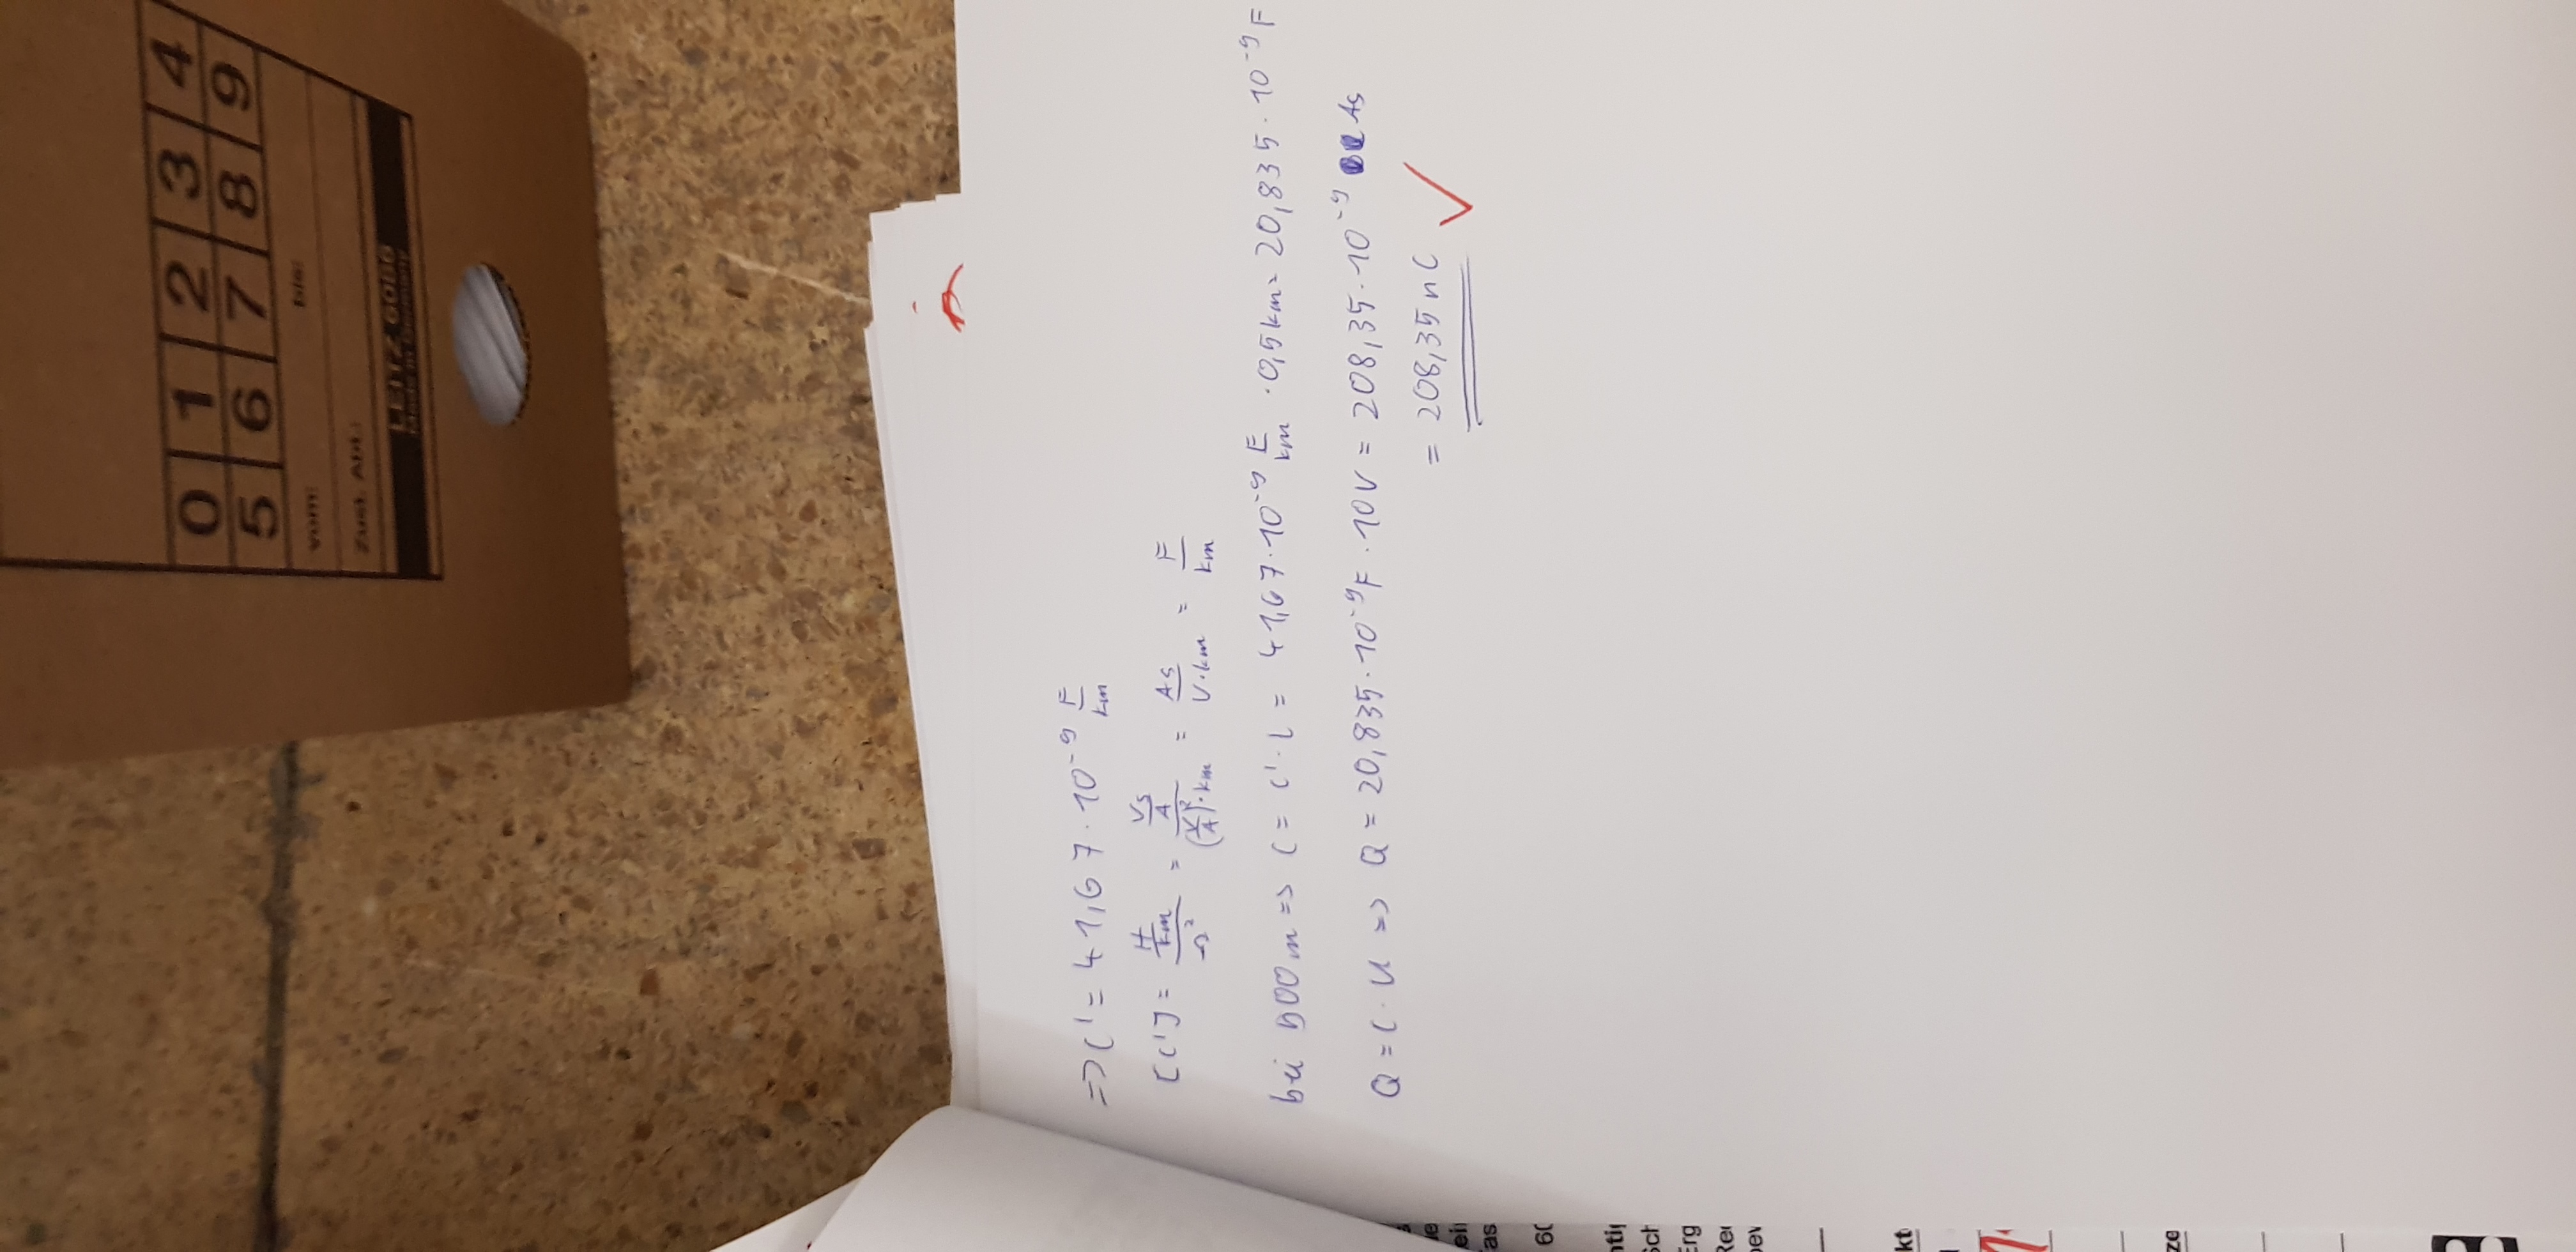 0 1 2 3 4
5 6 7 8 9
vom: bis:
Zust. Abt.:
LEITZ 6086
Made in Germany
=> C' = 41,67 · 10⁻⁹ F/km
[C'] = (H/km)/Ω² = (Vs/A)/((V/A)² · km) = As/(V·km) = F/km
bei 500 m => C = C' · l = 41,67 · 10⁻⁹ F/km · 0,5 km = 20,835 · 10⁻⁹ F
Q = C · U => Q = 20,835 · 10⁻⁹ F · 10 V = 208,35 · 10⁻⁹ As
= 208,35 nC ✓
60
Sch
Erg
kt
ze